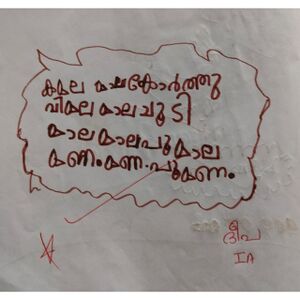 കമല മാലകോർത്തു
വിമല മാല ചൂടി
മാല മാല പൂമാല
മണം മണം പൂമണം.
ദീപ
IA